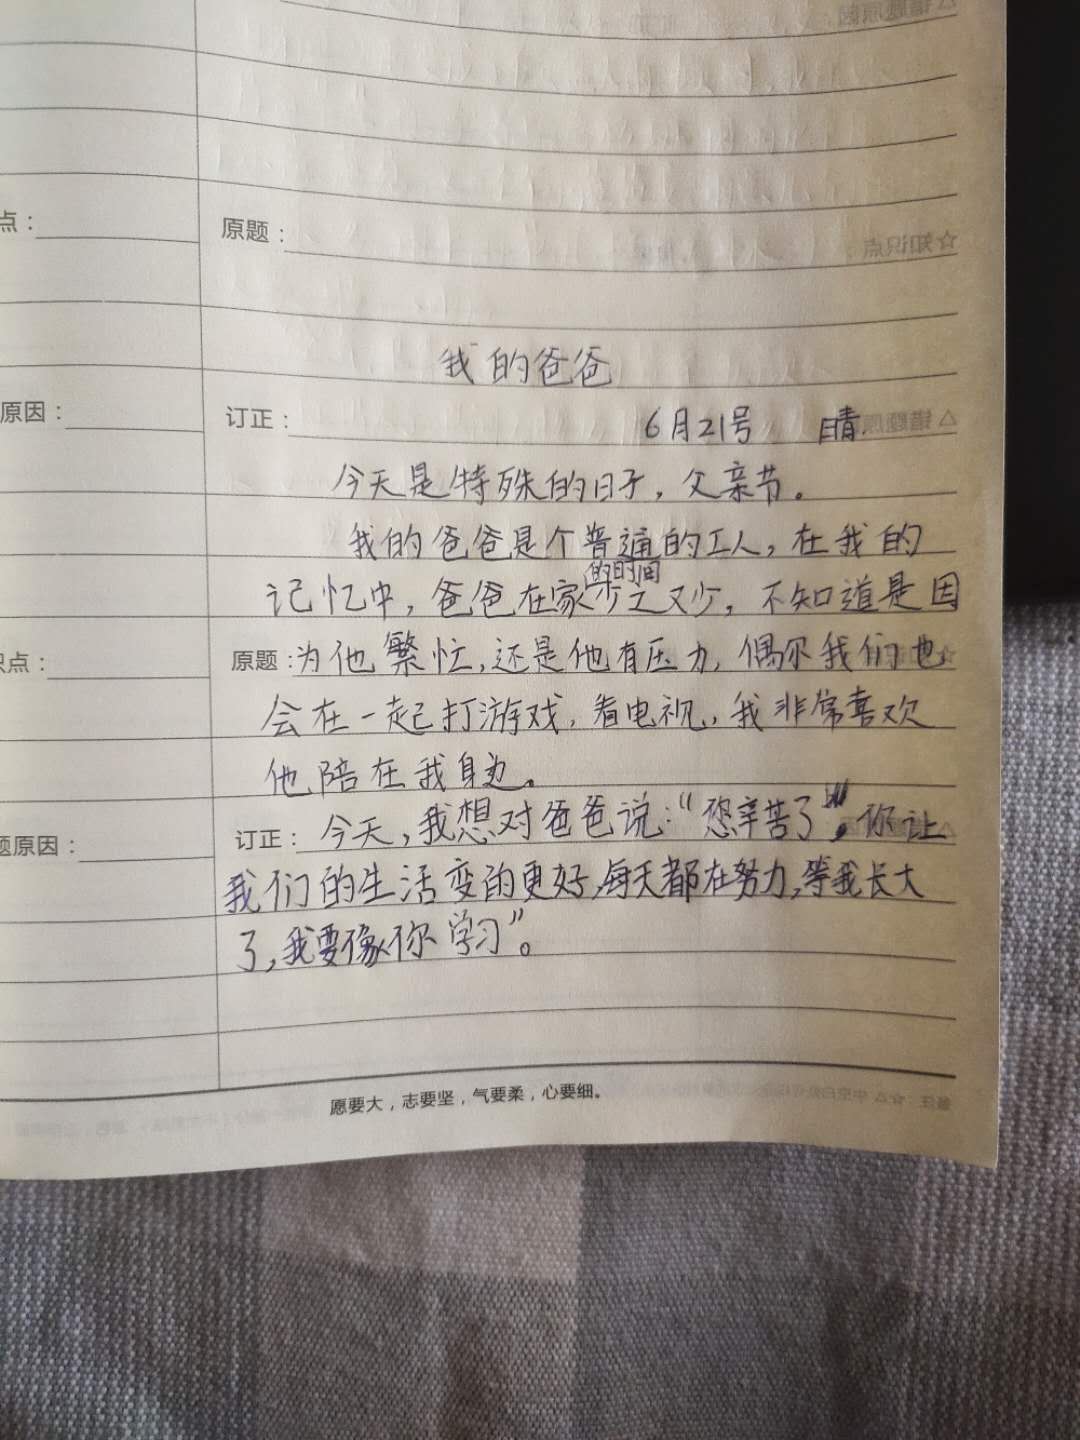 点：
原题：
我的爸爸
原因：
订正：
6月21号 晴
今天是特殊的日子，父亲节。
我的爸爸是个普通的工人，在我的
记忆中，爸爸在家的时间少之又少，不知道是因
识点：
原题：
为他繁忙，还是他有压力，偶尔我们也
会在一起打游戏，看电视，我非常喜欢
他陪在我身边。
题原因：
订正：
今天，我想对爸爸说：“您辛苦了，你让
我们的生活变的更好，每天都在努力，等我长大
了，我要像你学习”。
愿要大，志要坚，气要柔，心要细。